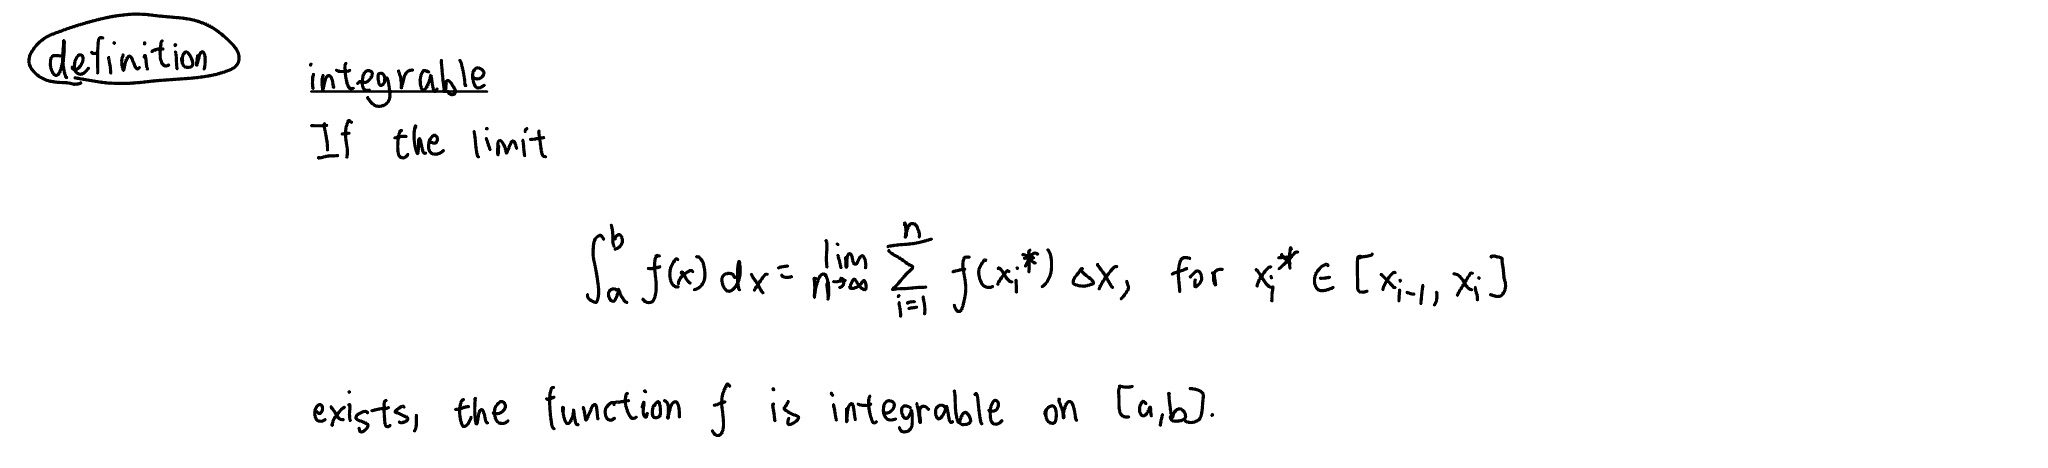 definition
integrable
If the limit
∫_a^b f(x) dx = lim_{n→∞} ∑_{i=1}^n f(x_i*) Δx, for x_i* ∈ [x_{i-1}, x_i]
exists, the function f is integrable on [a,b].